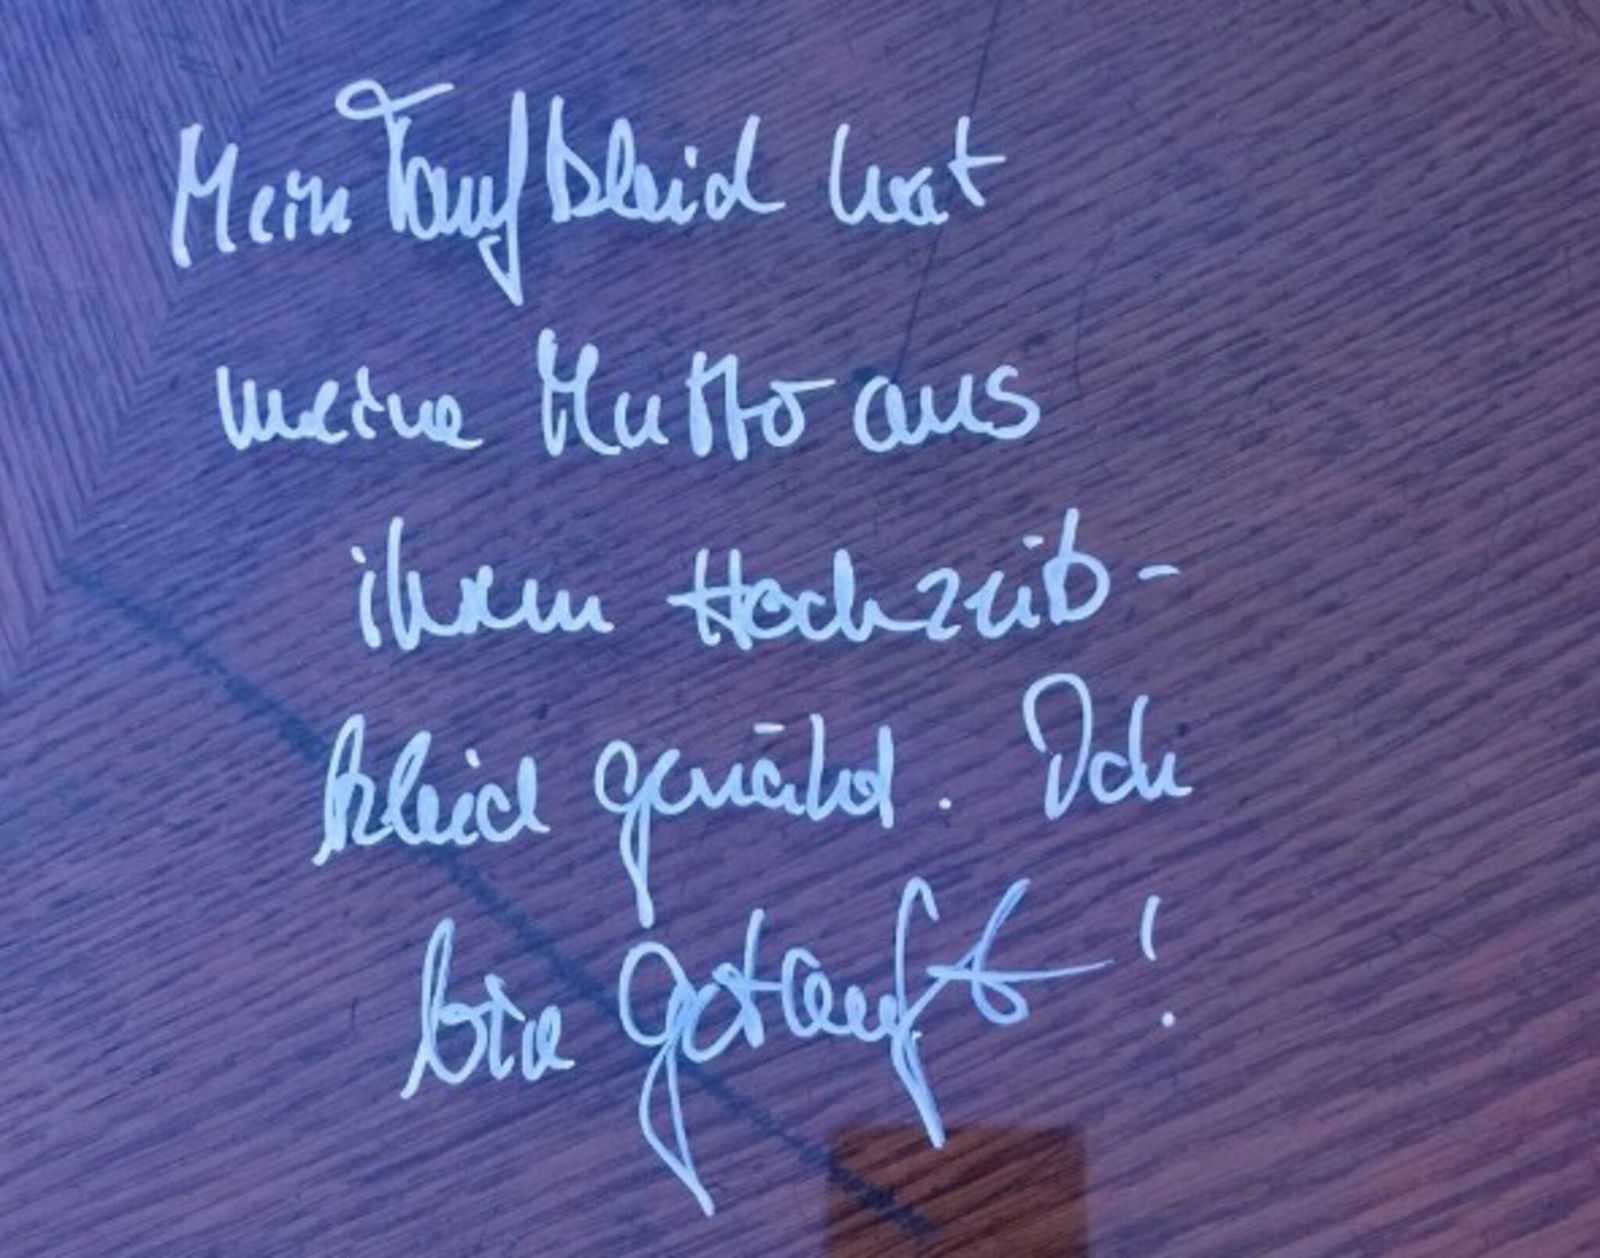 Mein Taufkleid hat
meine Mutter aus
ihrem Hochzeits-
kleid genäht. Ich
bin getauft!